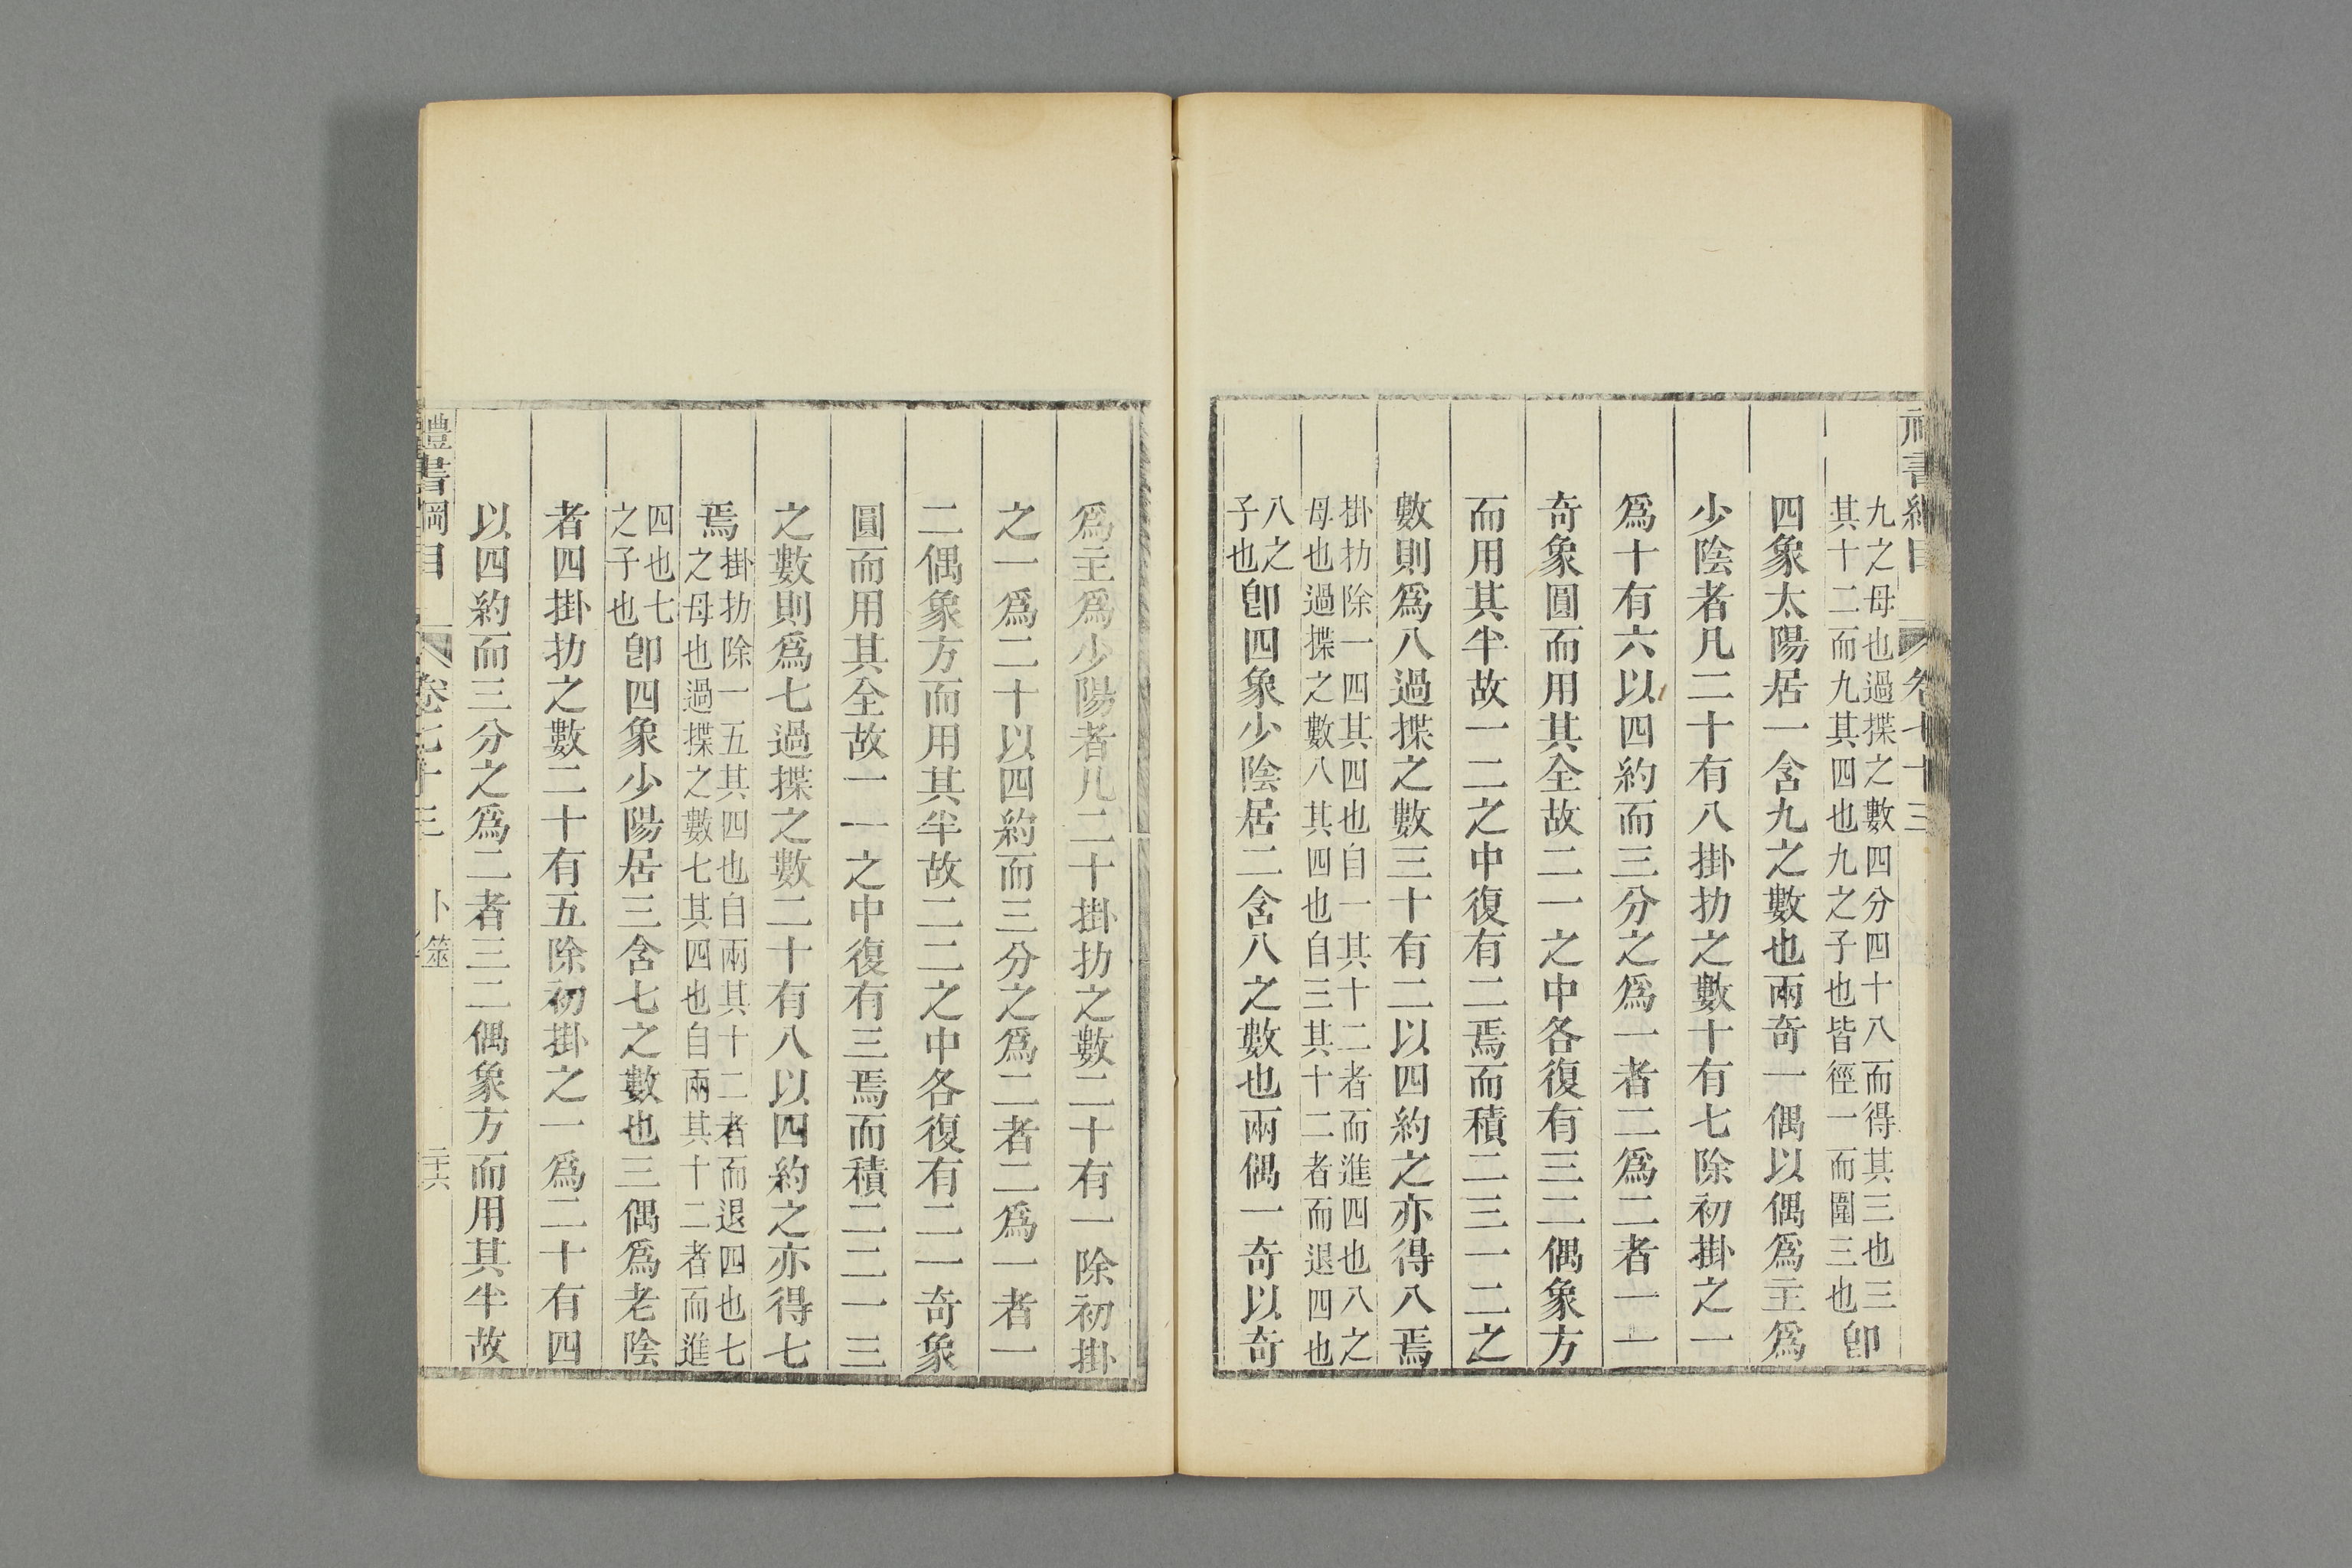 九之母也過揲之數四分四十八而得其三也三
其十二而九其四也九之子也皆徑一而圍三也
卽
四象太陽居一含九之數也兩奇一偶以偶爲主爲
少陰者凡二十有八掛扐之數十有七除初掛之一
爲十有六以四約而三分之爲一者二爲二者一一
奇象圓而用其全故二一之中各復有三二偶象方
而用其半故一二之中復有二焉而積二三一二之
數則爲八過揲之數三十有二以四約之亦得八焉
掛扐除一四其四也自一其十二者而進四也八之
母也過揲之數八其四也自三其十二者而退四也
八之
子也
卽四象少陰居二含八之數也兩偶一奇以奇
爲主爲少陽者凡二十掛扐之數二十有一除初掛
之一爲二十以四約而三分之爲二者二爲一者一
二偶象方而用其半故二二之中各復有二一奇象
圓而用其全故一一之中復有三焉而積二二一三
之數則爲七過揲之數二十有八以四約之亦得七
焉
掛扐除一五其四也自兩其十二者而退四也七
之母也過揲之數七其四也自兩其十二者而進
四也七
之子也
卽四象少陽居三含七之數也三偶爲老陰
者四掛扐之數二十有五除初掛之一爲二十有四
以四約而三分之爲二者三二偶象方而用其半故
禮書綱目 卷七十三 卜筮